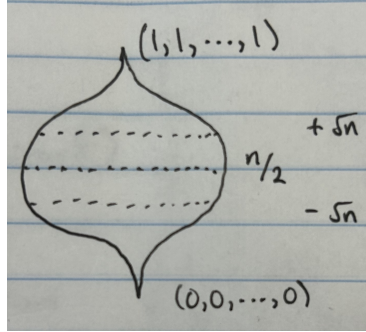 (1, 1, ..., 1)
+ √n
n/2
- √n
(0, 0, ..., 0)